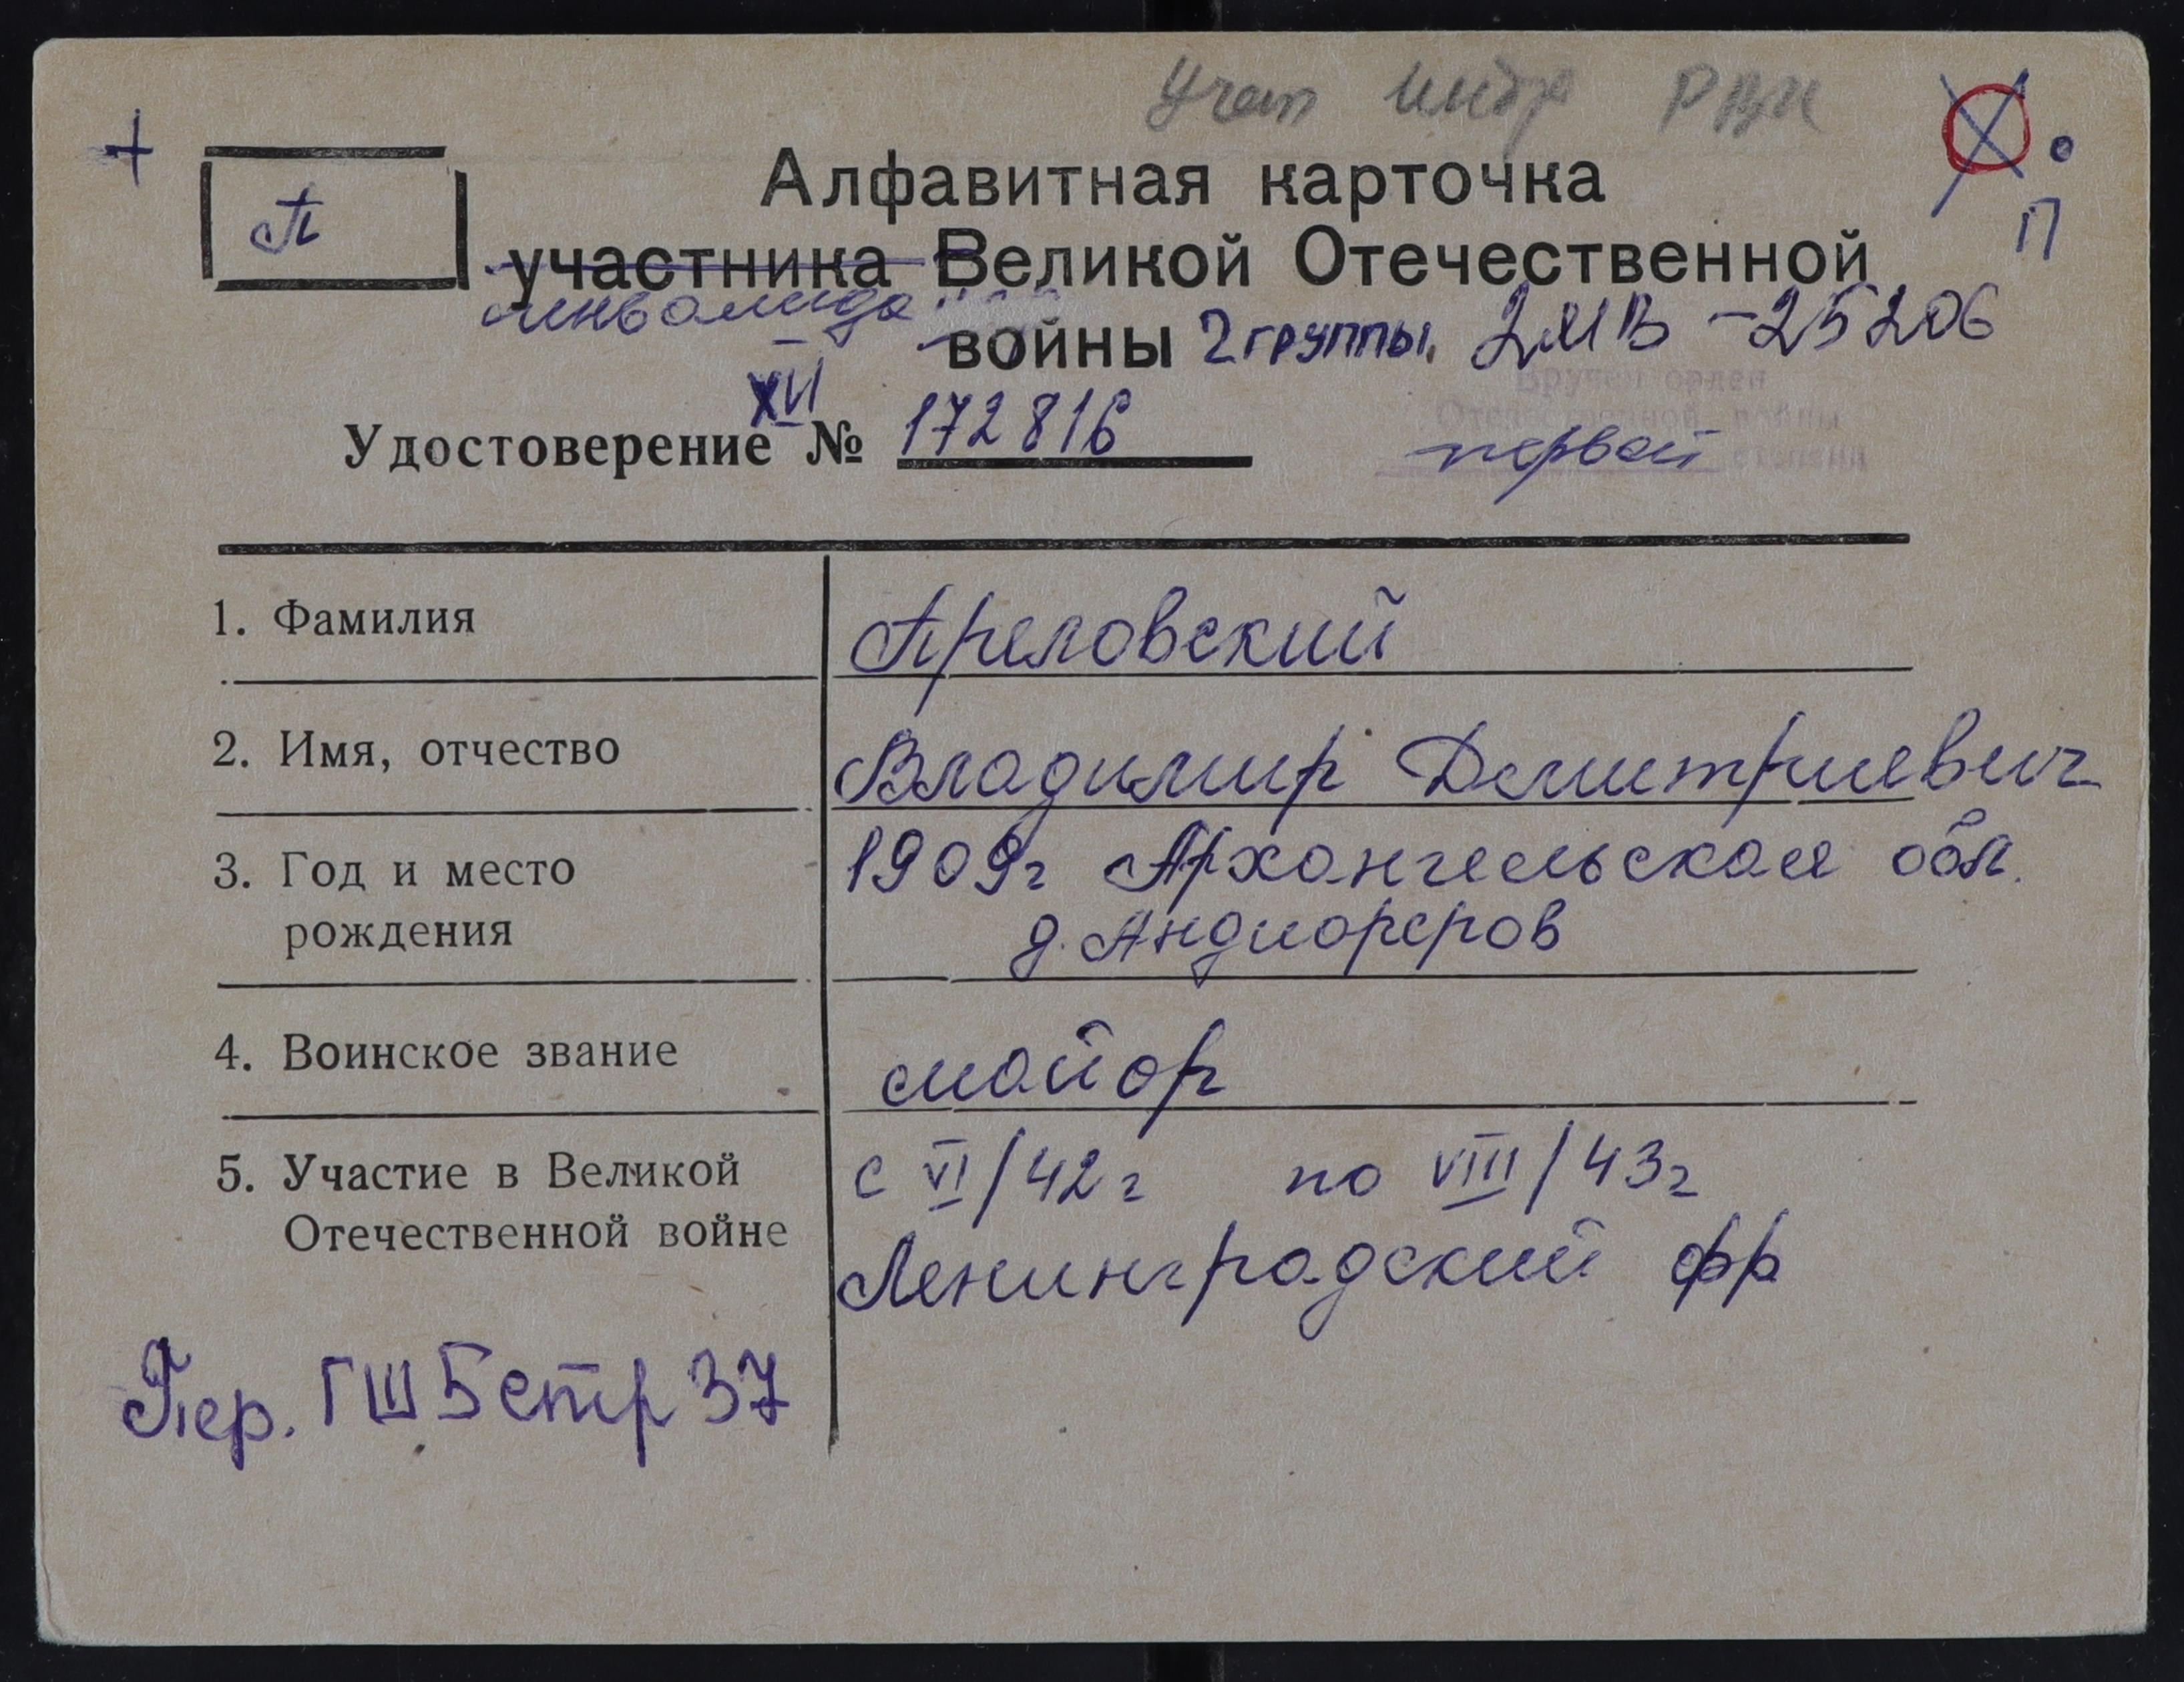 Учет инвр РВК
+
П
П
Алфавитная карточка
участника Великой Отечественной
инвалида войны 2 группы. 2МВ - 25206
Вручен орден
Отечественной войны
первой степени
XVI
Удостоверение № 172816
1. Фамилия Преловский
2. Имя, отчество Владимир Дмитриевич
3. Год и место 1909г Архангельская обл.
рождения д. Андиореров
4. Воинское звание майор
5. Участие в Великой с VI/42г по VIII/43г
Отечественной войне Ленинградский фр
Пер. ГШ Б стр 37